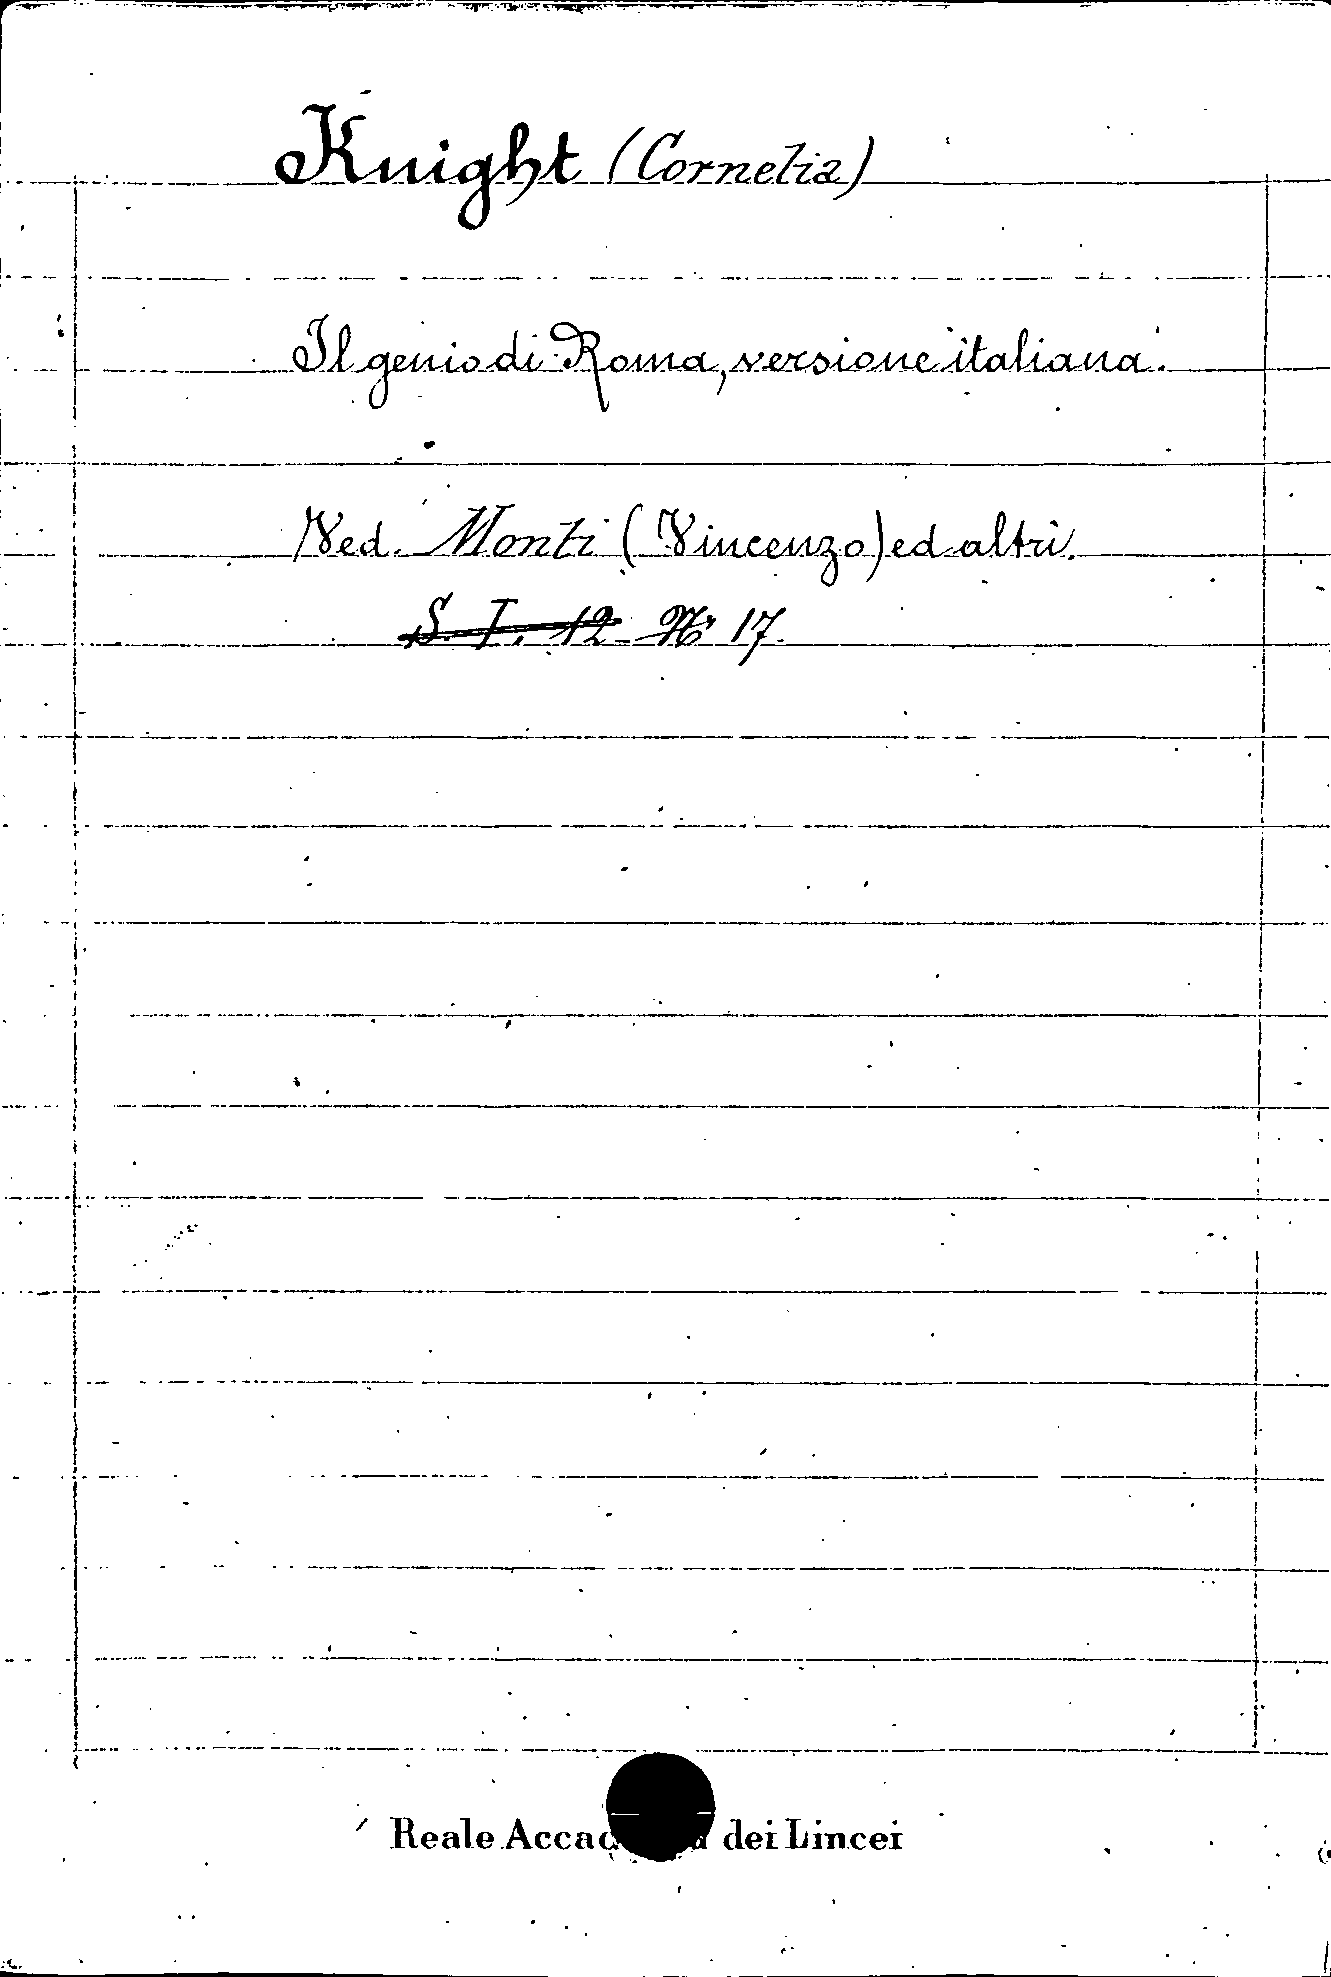 Knight (Cornelia)
Il genio di Roma, versione italiana.
Ved. Monti (Vincenzo) ed altri.
S. T. 12 N.º 17.
Reale Accad dei Lincei